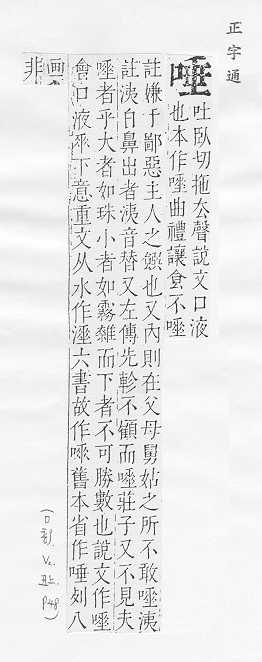 正字通
唾
吐臥切拖厺聲說文口液
也本作唾曲禮讓食不唾
註嫌于鄙惡主人之饌也又內則在父母舅姑之所不敢唾洟
註洟自鼻出者洟音替又左傳先軫不顧而唾莊子又不見夫
唾者乎大者如珠小者如霧雜而下者不可勝數也說文作唾
會口液𠂹下意重文从水作涶六書故作舊本省作唾刻八
畫
非
(口部. V2. 丑上. P48)